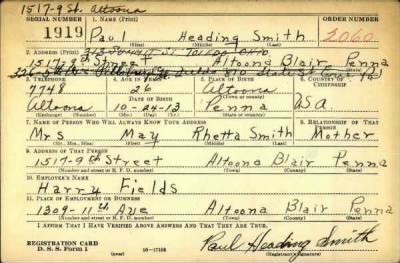 1517-9 St. Altoona
SERIAL NUMBER 1. NAME (Print) ORDER NUMBER
1919 Paul Heading Smith 2060
(First) (Middle) (Last)
2. ADDRESS (Print)
1517-9th Street Altoona Blair Penna
(Number and street or R. F. D. number) (Town) (County) (State)
3. TELEPHONE 4. AGE IN YEARS 5. PLACE OF BIRTH 6. COUNTRY OF CITIZENSHIP
7748 26 Altoona
(Town or county)
DATE OF BIRTH
Altoona 10-24-13 Penna USA
(Exchange) (Number) (Mo.) (Day) (Yr.) (State or country)
7. NAME OF PERSON WHO WILL ALWAYS KNOW YOUR ADDRESS 8. RELATIONSHIP OF THAT PERSON
Mrs May Rhetta Smith Mother
(Mr., Mrs., Miss) (First) (Middle) (Last)
9. ADDRESS OF THAT PERSON
1517-9th Street Altoona Blair Penna
(Number and street or R. F. D. number) (Town) (County) (State)
10. EMPLOYER'S NAME
Harry Fields
11. PLACE OF EMPLOYMENT OR BUSINESS
1309-11th Ave Altoona Blair Penna
(Number and street or R. F. D. number) (Town) (County) (State)
I AFFIRM THAT I HAVE VERIFIED ABOVE ANSWERS AND THAT THEY ARE TRUE.
REGISTRATION CARD
D. S. S. Form 1 16-17105 Paul Heading Smith
(Registrant's signature)